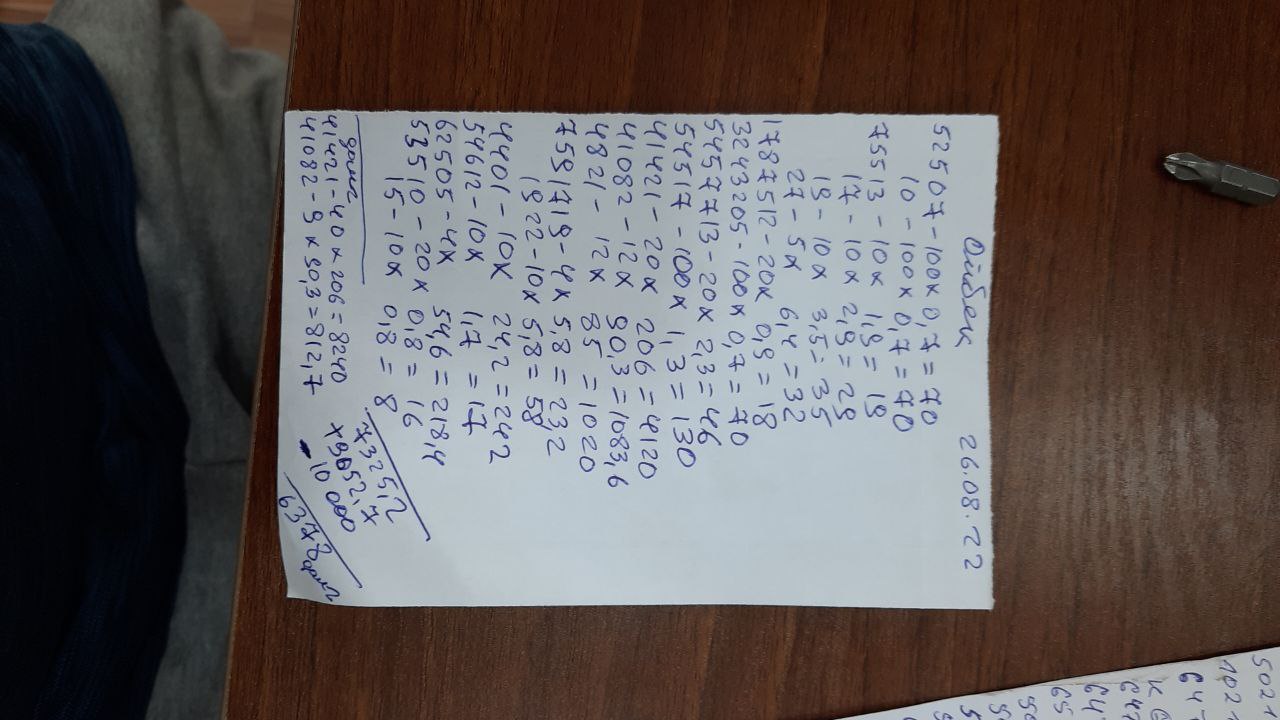 Одибек 26.08.22
52507-100x0,7=70
10-100x0,7=70
75513-10x1,9=19
17-10x2,9=29
19-10x3,5=35
27-5x6,4=32
1787512-20x0,9=18
3243205-100x0,7=70
5457713-20x2,3=46
54517-100x1,3=130
41421-20x206=4120
41082-12x90,3=1083,6
4821-12x85=1020
7591719-4x5,8=23,2
1922-10x5,8=58
44401-10x24,2=242
54612-10x1,7=17
62505-4x54,6=218,4
53510-20x0,8=16
15-10x0,8=8
41421-40x206=8240
41082-9x90,3=812,7
10 000
5021
102
647
65
64